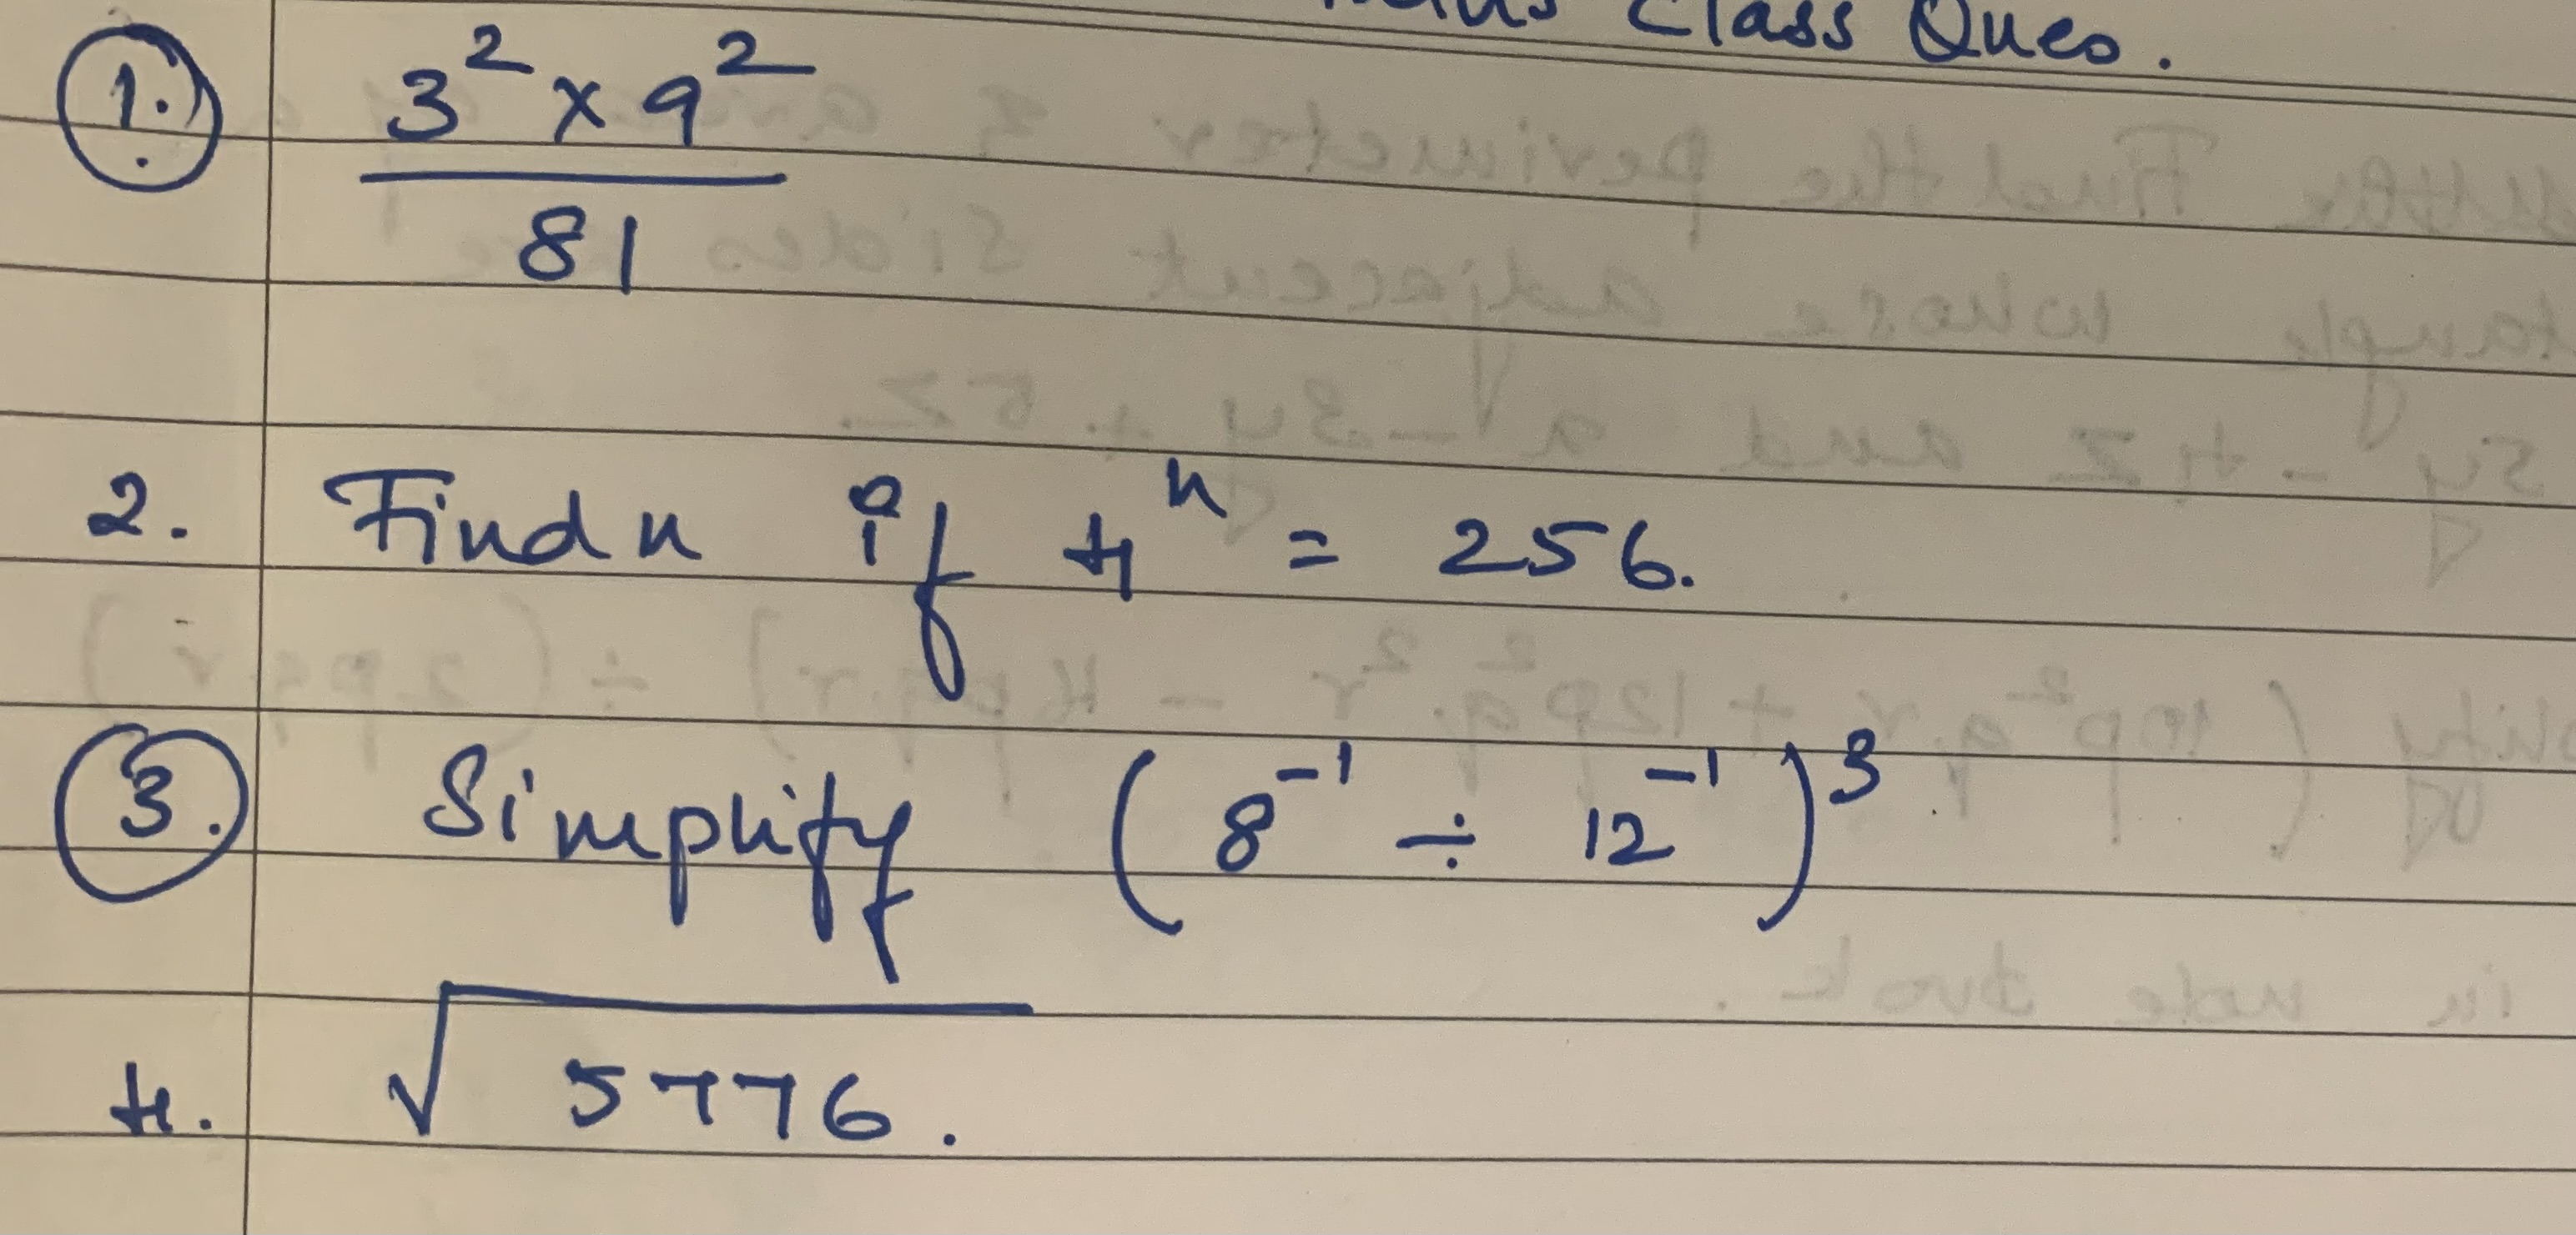 Class Ques.
1. 3² × 9² / 81
2. Find n if 4ⁿ = 256.
3. Simplify (8⁻¹ ÷ 12⁻¹)³
4. √5776.